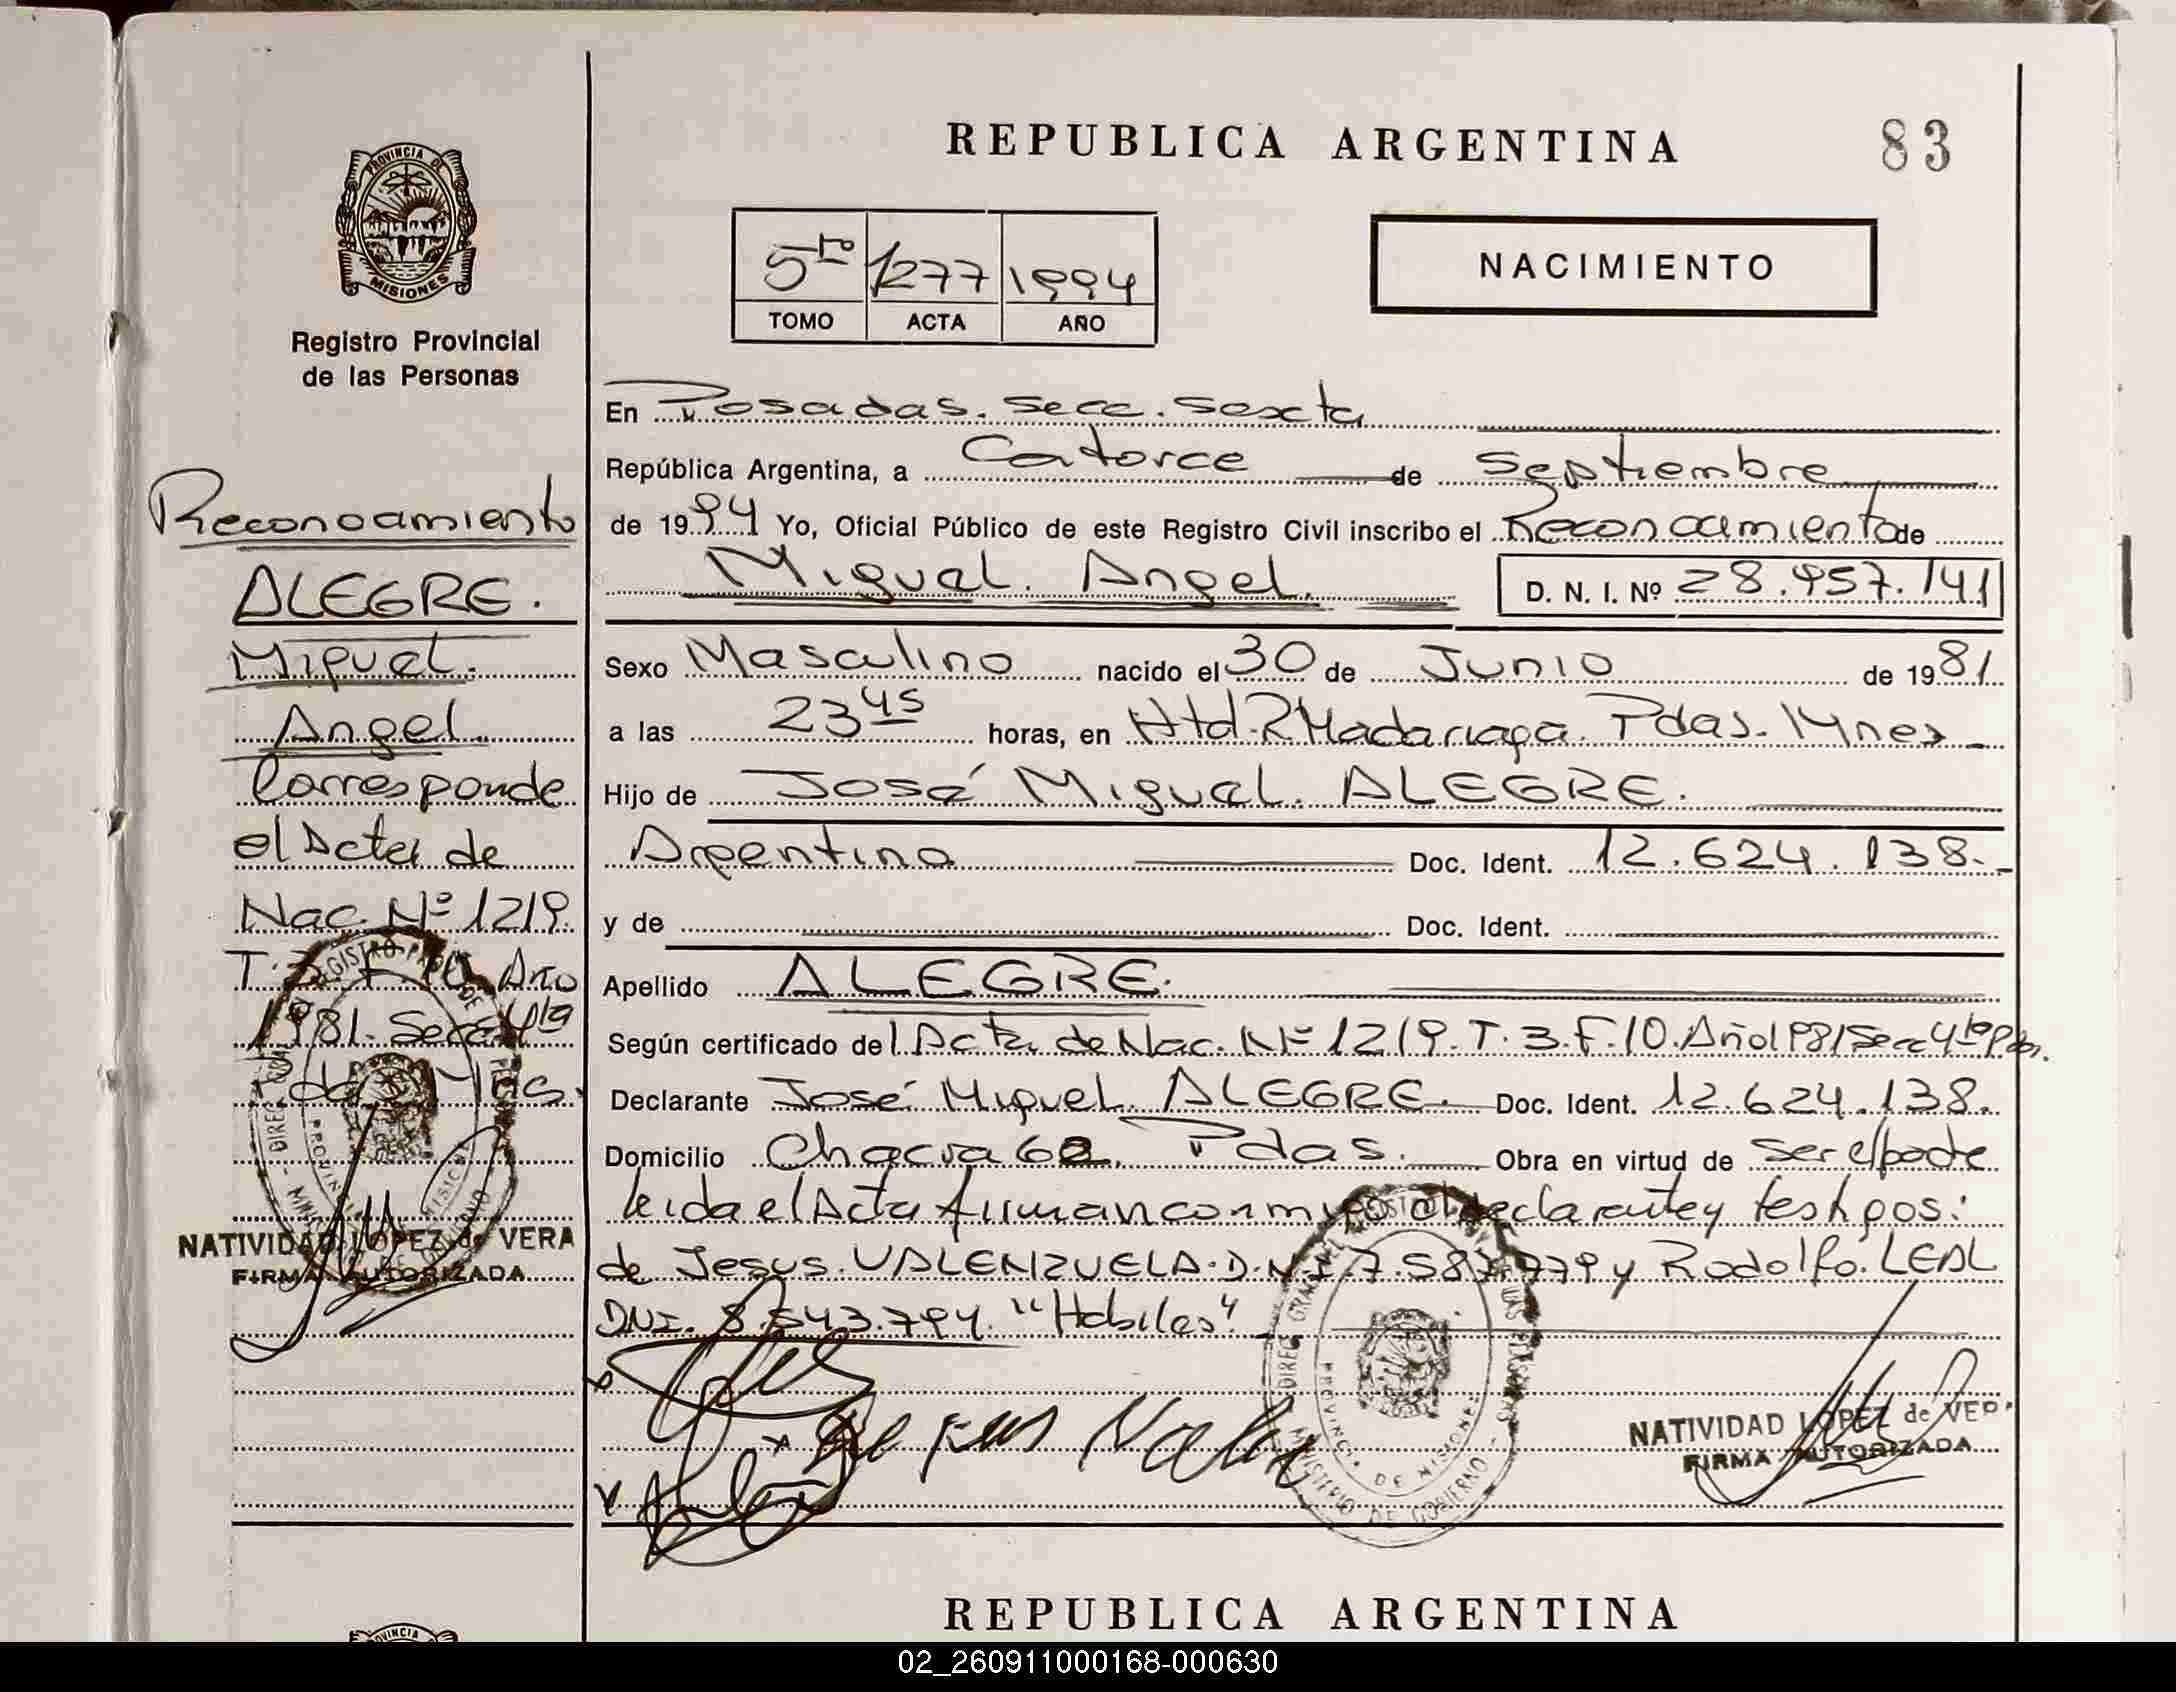 REPUBLICA ARGENTINA
83
PROVINCIA DE
MISIONES
Registro Provincial
de las Personas
5to 1277 1994
TOMO ACTA AÑO
NACIMIENTO
Reconocimiento
ALEGRE.
Miguel.
Angel
Corresponde
el Acta de
Nac. Nº 1219.
T. 3 F. 10 Año
1981. Secc 4ta
Pdas Mnes.
NATIVIDAD LOPEZ de VERA
FIRMA AUTORIZADA
En Posadas. Secc. Sexta
República Argentina, a Catorce de Septiembre
de 1994 Yo, Oficial Público de este Registro Civil inscribo el Reconocimiento de
Miguel. Angel. D. N. I. Nº 28.957.141
Sexo Masculino nacido el 30 de Junio de 1981
a las 23 45 horas, en Htal. R Madariaga. Pdas. Mnes
Hijo de José Miguel. ALEGRE.
Argentino Doc. Ident. 12.624.138.-
y de Doc. Ident.
Apellido ALEGRE.
Según certificado del Acta de Nac. Nº 1219. T. 3. F. 10. Año 1981 Secc 4ta Pdas.
Declarante José Miguel ALEGRE. Doc. Ident. 12.624.138.
Domicilio Chacra 62. Pdas. Obra en virtud de ser el padre
leida el Acta firman conmigo el declarante y testigos:
de Jesus. VALENZUELA. D.N.I. 7.587.779 y Rodolfo. LEAL
DNI. 8.543.794. "Habiles"
DIREC. GRAL. DEL REGISTRO PROV. DE LAS PERSONAS
PROVINCIA DE MISIONES
MINISTERIO DE GOBIERNO
NATIVIDAD LOPEZ de VERA
FIRMA AUTORIZADA
REPUBLICA ARGENTINA
PROVINCIA
02_260911000168-000630